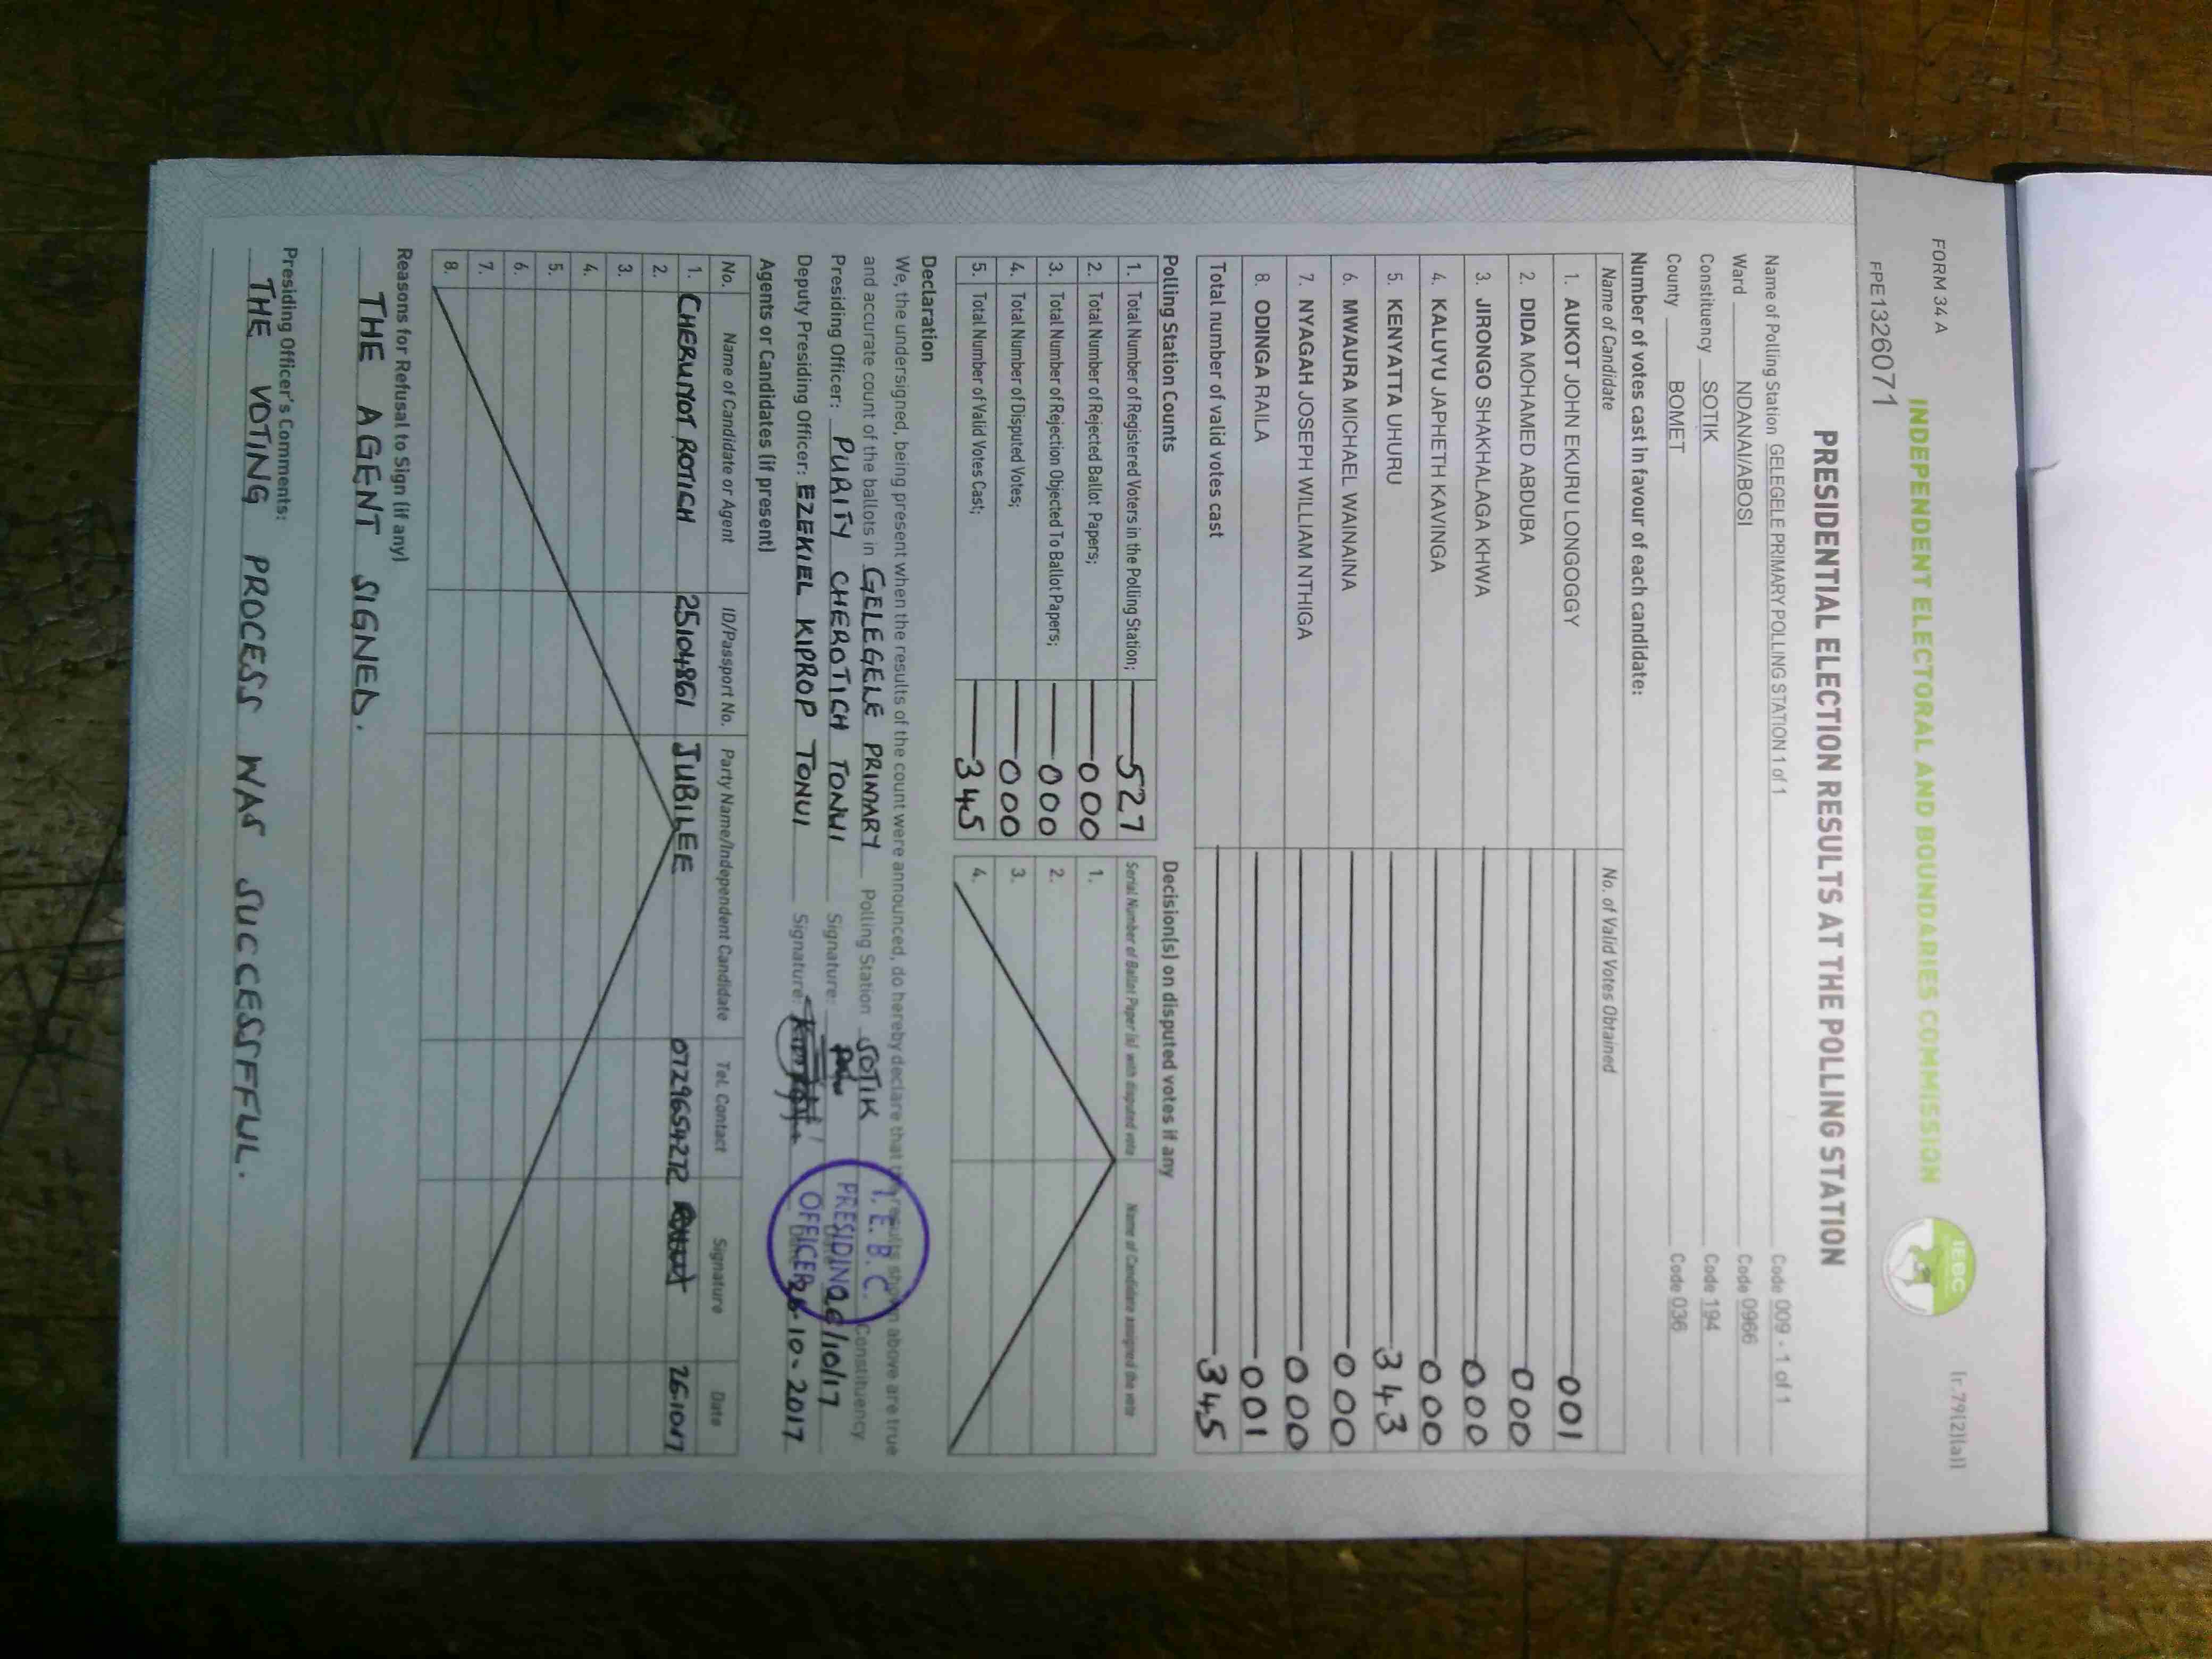 FORM 34 A
[r.79(2)(a)]
INDEPENDENT ELECTORAL AND BOUNDARIES COMMISSION
IEBC
FPE1326071
PRESIDENTIAL ELECTION RESULTS AT THE POLLING STATION
Name of Polling Station GELEGELE PRIMARY POLLING STATION 1 of 1 Code 009 - 1 of 1
Ward NDANAI/ABOSI Code 0966
Constituency SOTIK Code 194
County BOMET Code 036
Number of votes cast in favour of each candidate:
Name of Candidate No. of Valid Votes Obtained
1. AUKOT JOHN EKURU LONGOGGY 001
2. DIDA MOHAMED ABDUBA 000
3. JIRONGO SHAKHALAGA KHWA 000
4. KALUYU JAPHETH KAVINGA 000
5. KENYATTA UHURU 343
6. MWAURA MICHAEL WAINAINA 000
7. NYAGAH JOSEPH WILLIAM NTHIGA 000
8. ODINGA RAILA 001
Total number of valid votes cast 345
Polling Station Counts
1. Total Number of Registered Voters in the Polling Station; 527
2. Total Number of Rejected Ballot Papers; 000
3. Total Number of Rejection Objected To Ballot Papers; 000
4. Total Number of Disputed Votes; 000
5. Total Number of Valid Votes Cast; 345
Decision(s) on disputed votes if any
Serial Number of Ballot Paper (s) with disputed vote Name of Candidate assigned the vote
1.
2.
3.
4.
Declaration
We, the undersigned, being present when the results of the count were announced, do hereby declare that the results shown above are true
and accurate count of the ballots in GELEGELE PRIMARY Polling Station SOTIK Constituency
Presiding Officer: PURITY CHEROTICH TONUI Signature: Date 26/10/17
Deputy Presiding Officer: EZEKIEL KIPROP TONUI Signature: Date 26-10-2017
I.E.B.C.
PRESIDING
OFFICER
Agents or Candidates (if present)
No. Name of Candidate or Agent ID/Passport No. Party Name/Independent Candidate Tel. Contact Signature Date
1. CHERUIYOT ROTICH 25104861 JUBILEE 0729654272
2.
3.
4.
5.
6.
7.
8.
Reasons for Refusal to Sign (if any)
THE AGENT SIGNED.
Presiding Officer's Comments:
THE VOTING PROCESS WAS SUCCESSFUL.